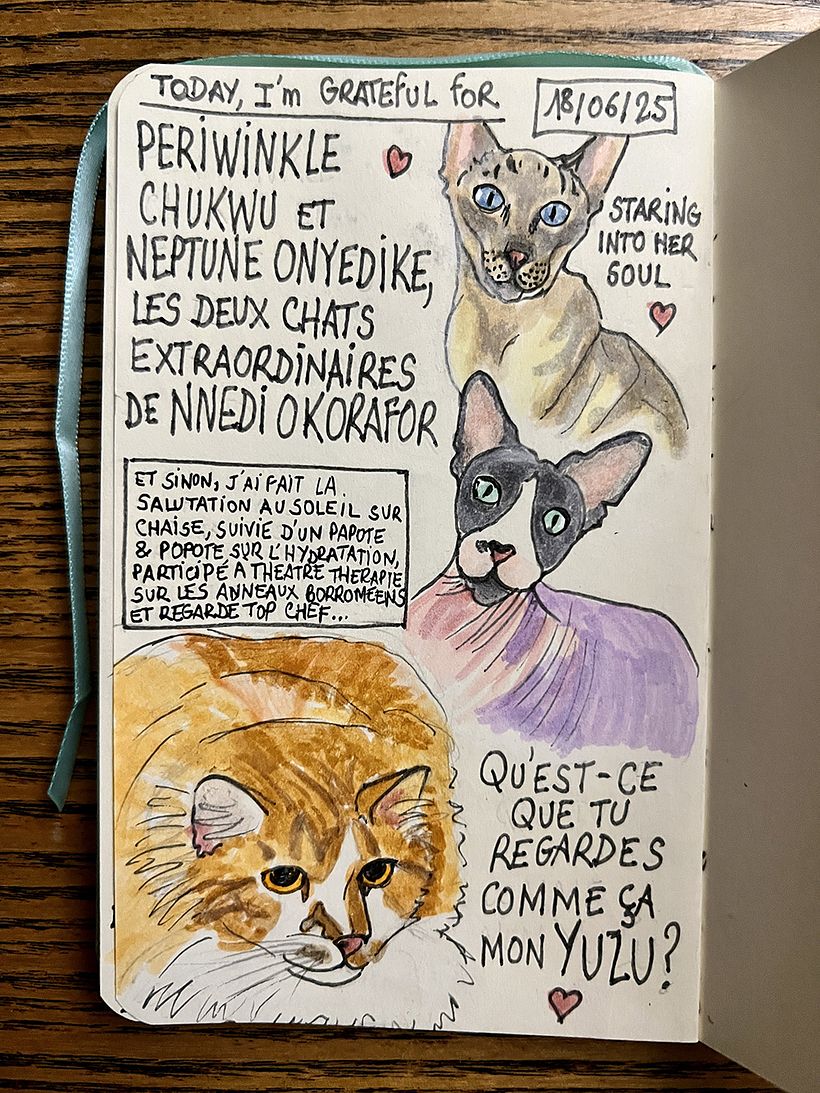 TODAY, I'm GRATEFUL FOR
18/06/25
PERIWINKLE
CHUKWU ET
NEPTUNE ONYEDIKE,
LES DEUX CHATS
EXTRAORDINAIRES
DE NNEDI OKORAFOR
STARING
INTO HER
SOUL
ET SINON, J'AI FAIT LA
SALUTATION AU SOLEIL SUR
CHAISE, SUIVIE D'UN PAPOTE
& POPOTE SUR L'HYDRATATION,
PARTICIPÉ À THEATRE THERAPIE
SUR LES ANNEAUX BORROMÉENS
ET REGARDE TOP CHEF...
QU'EST-CE
QUE TU
REGARDES
COMME ÇA
MON YUZU?